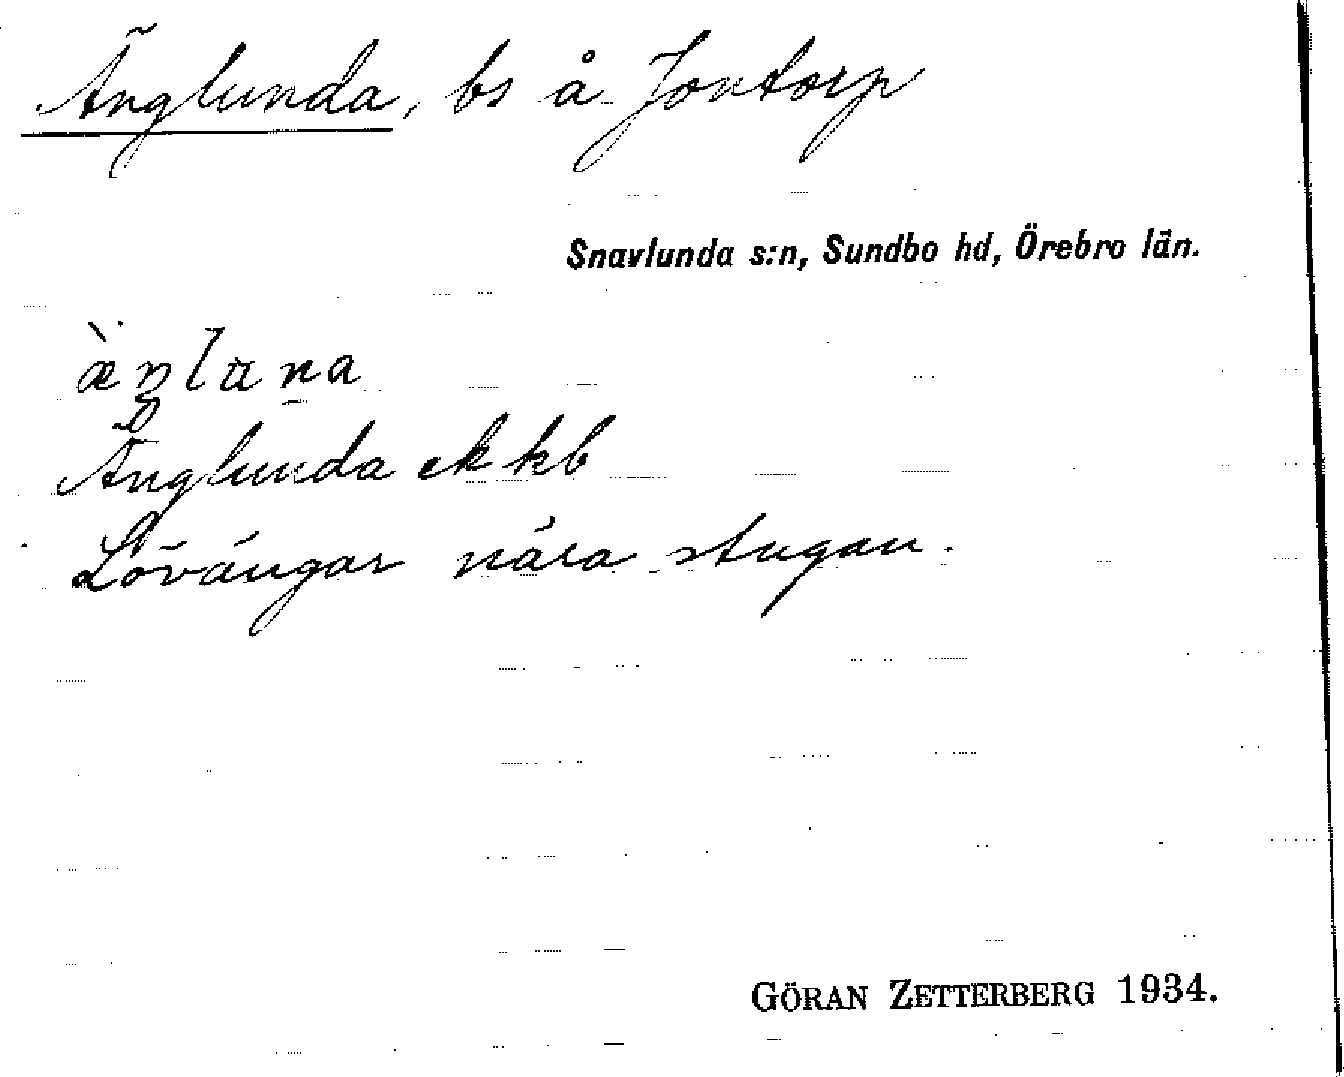 Änglunda, bs å Jontorp
Snavlunda s:n, Sundbo hd, Örebro län.
Änglunda ek kb
Lövängar nära stugan.
GÖRAN ZETTERBERG 1934.